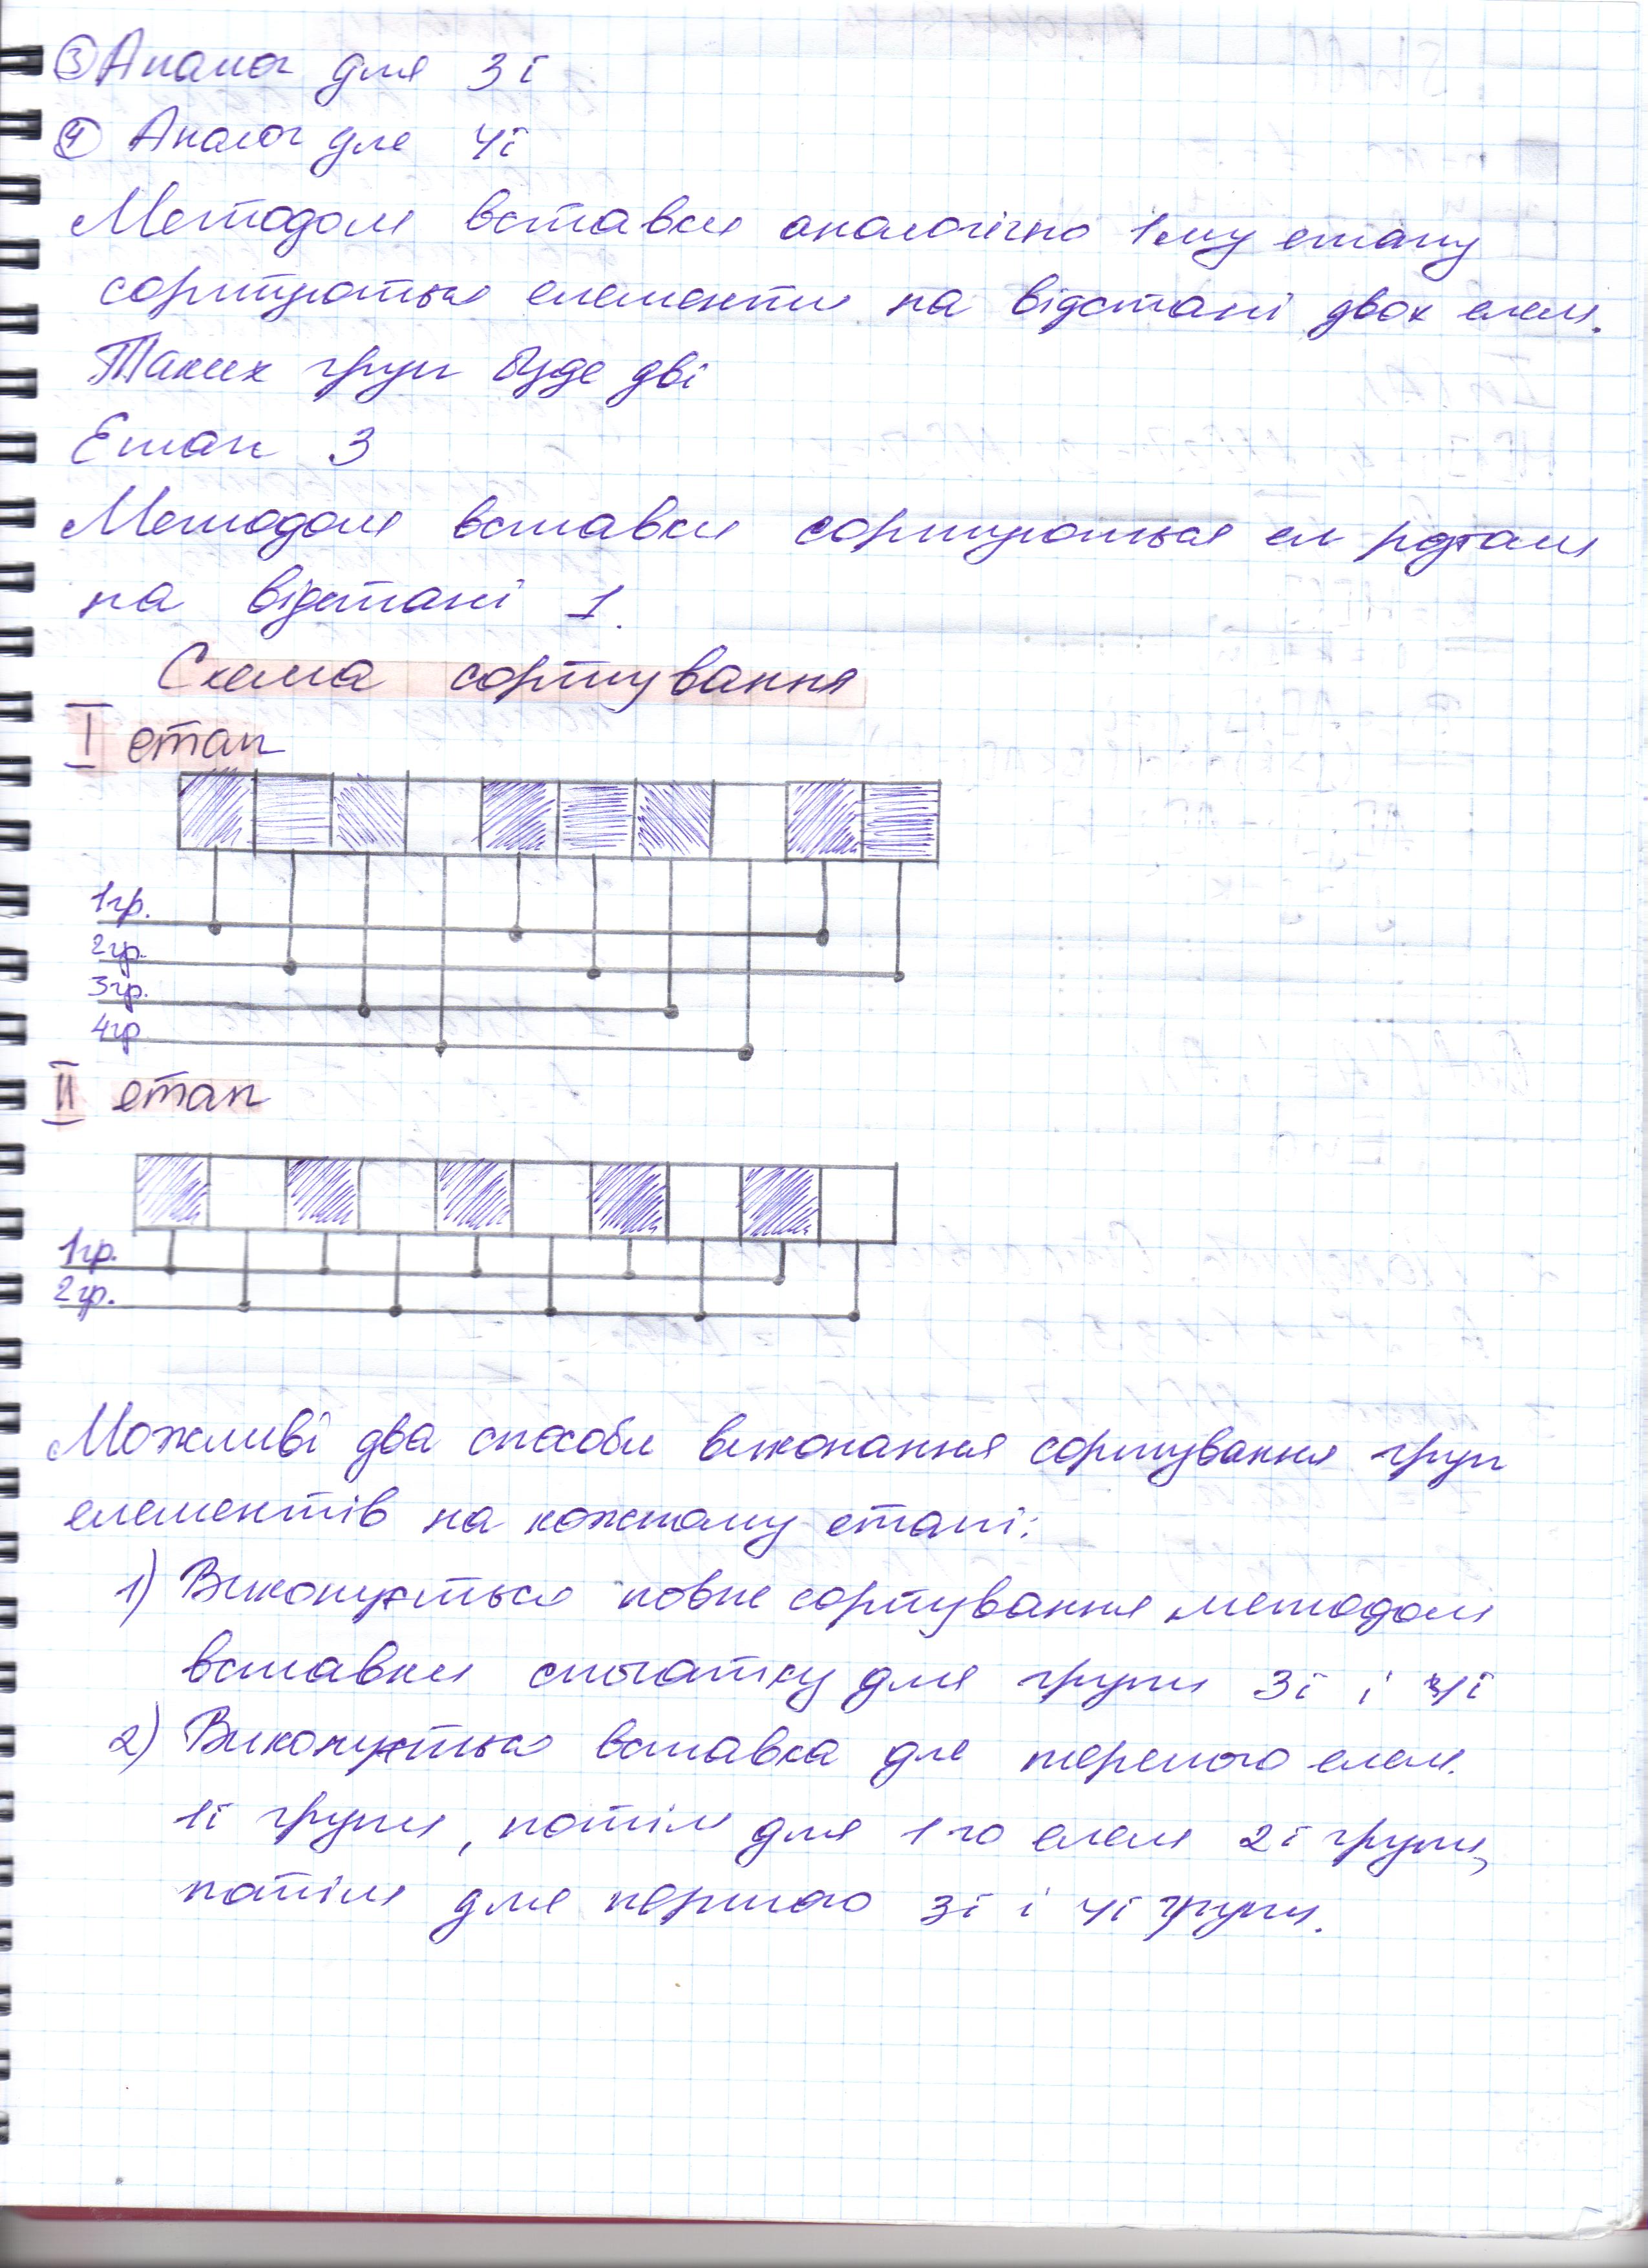 ③ Аналог для 3ї
④ Аналог для 4ї
Методом вставки аналогічно 1му етапу
сортуються елементи на відстані двох елем.
Таких груп буде дві
Етап 3
Методом вставки сортуються ел
на відстані 1.
Схема сортування
I етап
1гр.
2гр.
3гр.
4гр
II етап
1гр.
2гр.
Можливі два способи виконання сортування груп
елементів на кожному етапі:
1) Виконується повне сортування методом
вставки спочатку для групи 3ї і 4ї
2) Виконується вставка для першого елем.
1ї групи, потім для 1го елем 2ї групи,
потім для першого 3ї і 4ї групи.